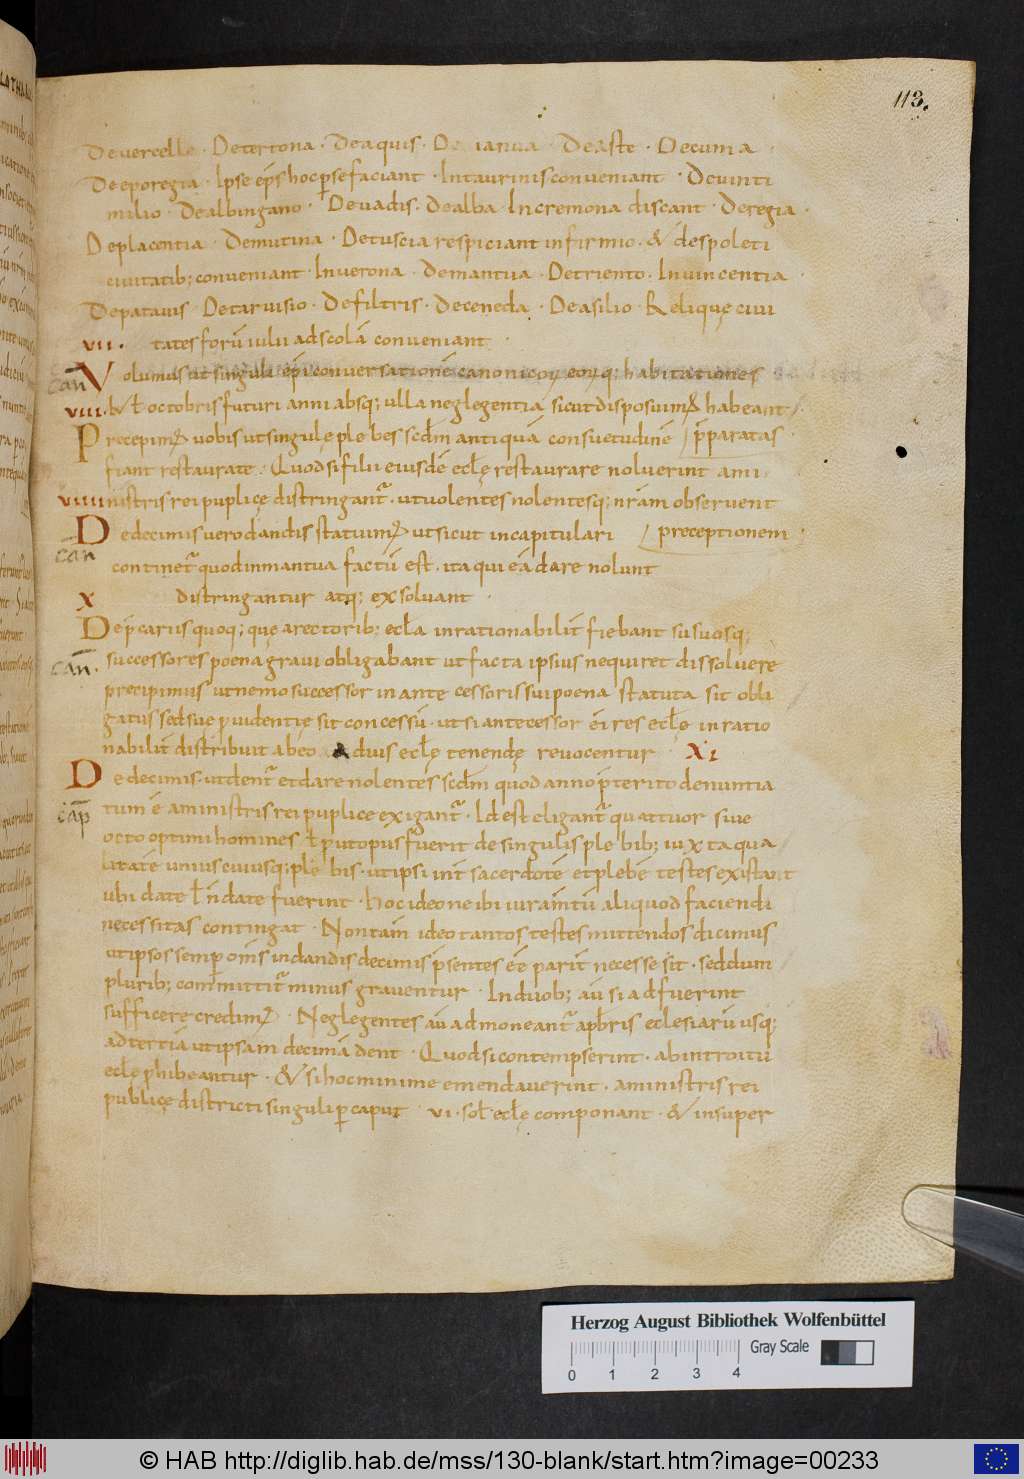 113.
De vercelle · De tertona · De aquis · De ianua · De aste · De cuma ·
De eporegia · Ipse ep̄s hoc ꝑ se faciant · In taurinis conveniant · De vinti
milio · De albingano · De vadis · De alba · In cremona discant · De regia ·
De placentia · De mutina · De tuscia respiciant in firmio · & de spoleti
civitatib; conveniant · In verona · De mantua · De triento · In vincentia ·
De patavis · De tarvisio · De filtris · De ceneda · De asilio · Reliquę civi
VII. tates forū iulii ad scolā conveniant ·
can̄ Volumus ut singuli ep̄i conversationē canonicoꝝ eoꝝq; habitationes
VIII. ƚ octobris futuri anni absq; ulla neglegentia sicut disposuimꝰ habeant
Precepimꝰ vobis ut singulę plebes scdm antiquā consuetudinē / p̄paratas
fiant restaurate · Quod si filii eiusdē ecƚę restaurare noluerint a mi
VIIII nistris rei puplicę distringant᷑ · ut volentes nolentesq; nr̄am observent
can De decimis vero dandis statuimꝰ ut sicut in capitulari / preceptionem
continet᷑ quod in mantua factū est · ita qui eā dare nolunt
X distringantur atq; exsolvant ·
De p̄cariis quoq; quę a rectorib; ecƚa inrationabilit̄ fiebant su suosq;
can̄. successores poena gravi obligabant ut facta ipsius nequiret dissolvere
precipimus ut nemo successor in antecessoris sui poena statuta sit obli
gatus sed sue ꝓvidentię sit concessū · ut si antecessor ei res ecƚę inratio
nabilit̄ distribuit ab eo ad vis ecƚę tenendę revocentur XI
De decimis · ut dent᷑ et dare nolentes scdm quod anno p̄terito denuntia
cap̄ tum ē a ministris rei puplice exigant᷑ · Id est eligant᷑ quattuor sive
octo optimi homines ƚ ꝓut opus fuerit de singulis plebib; iuxta qua
litatē uniuscuiusq; plebis · ut ipsi int̄ sacerdotē et plebē testes existant
ubi date ƚ n̄ date fuerint · hoc ideo ne ibi iuram̄tū aliquod faciendi
necessitas contingat · Non tam̄ ideo tantos testes mittendos dicimus
ut ipsos semꝑ om̄s in dandis decimis p̄sentes eē parit̄ necesse sit · sed dum
plurib; committit᷑ minus graventur · In duob; aū si adfuerint
sufficere credimꝰ · Neglegentes aū admoneant᷑ a p̄bris eclesiarū usq;
ad tertiā ut ipsam decimā dent · Quod si contempserint · ab introitū
ecƚę ꝓhibeantur · & si hoc minime emendaverint · a ministris rei
publicę districti singuli ꝑ caput · VI · sol ecƚę componant · & insuper
Herzog August Bibliothek Wolfenbüttel
Gray Scale
0 1 2 3 4
© HAB http://diglib.hab.de/mss/130-blank/start.htm?image=00233